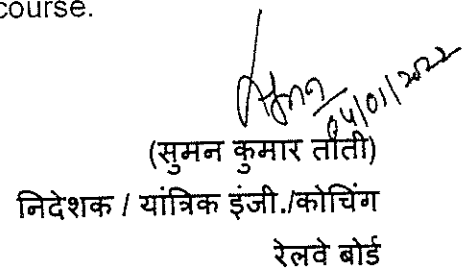 course.
04/01/2022
(सुमन कुमार ताँती)
निदेशक / यांत्रिक इंजी./कोचिंग
रेलवे बोर्ड